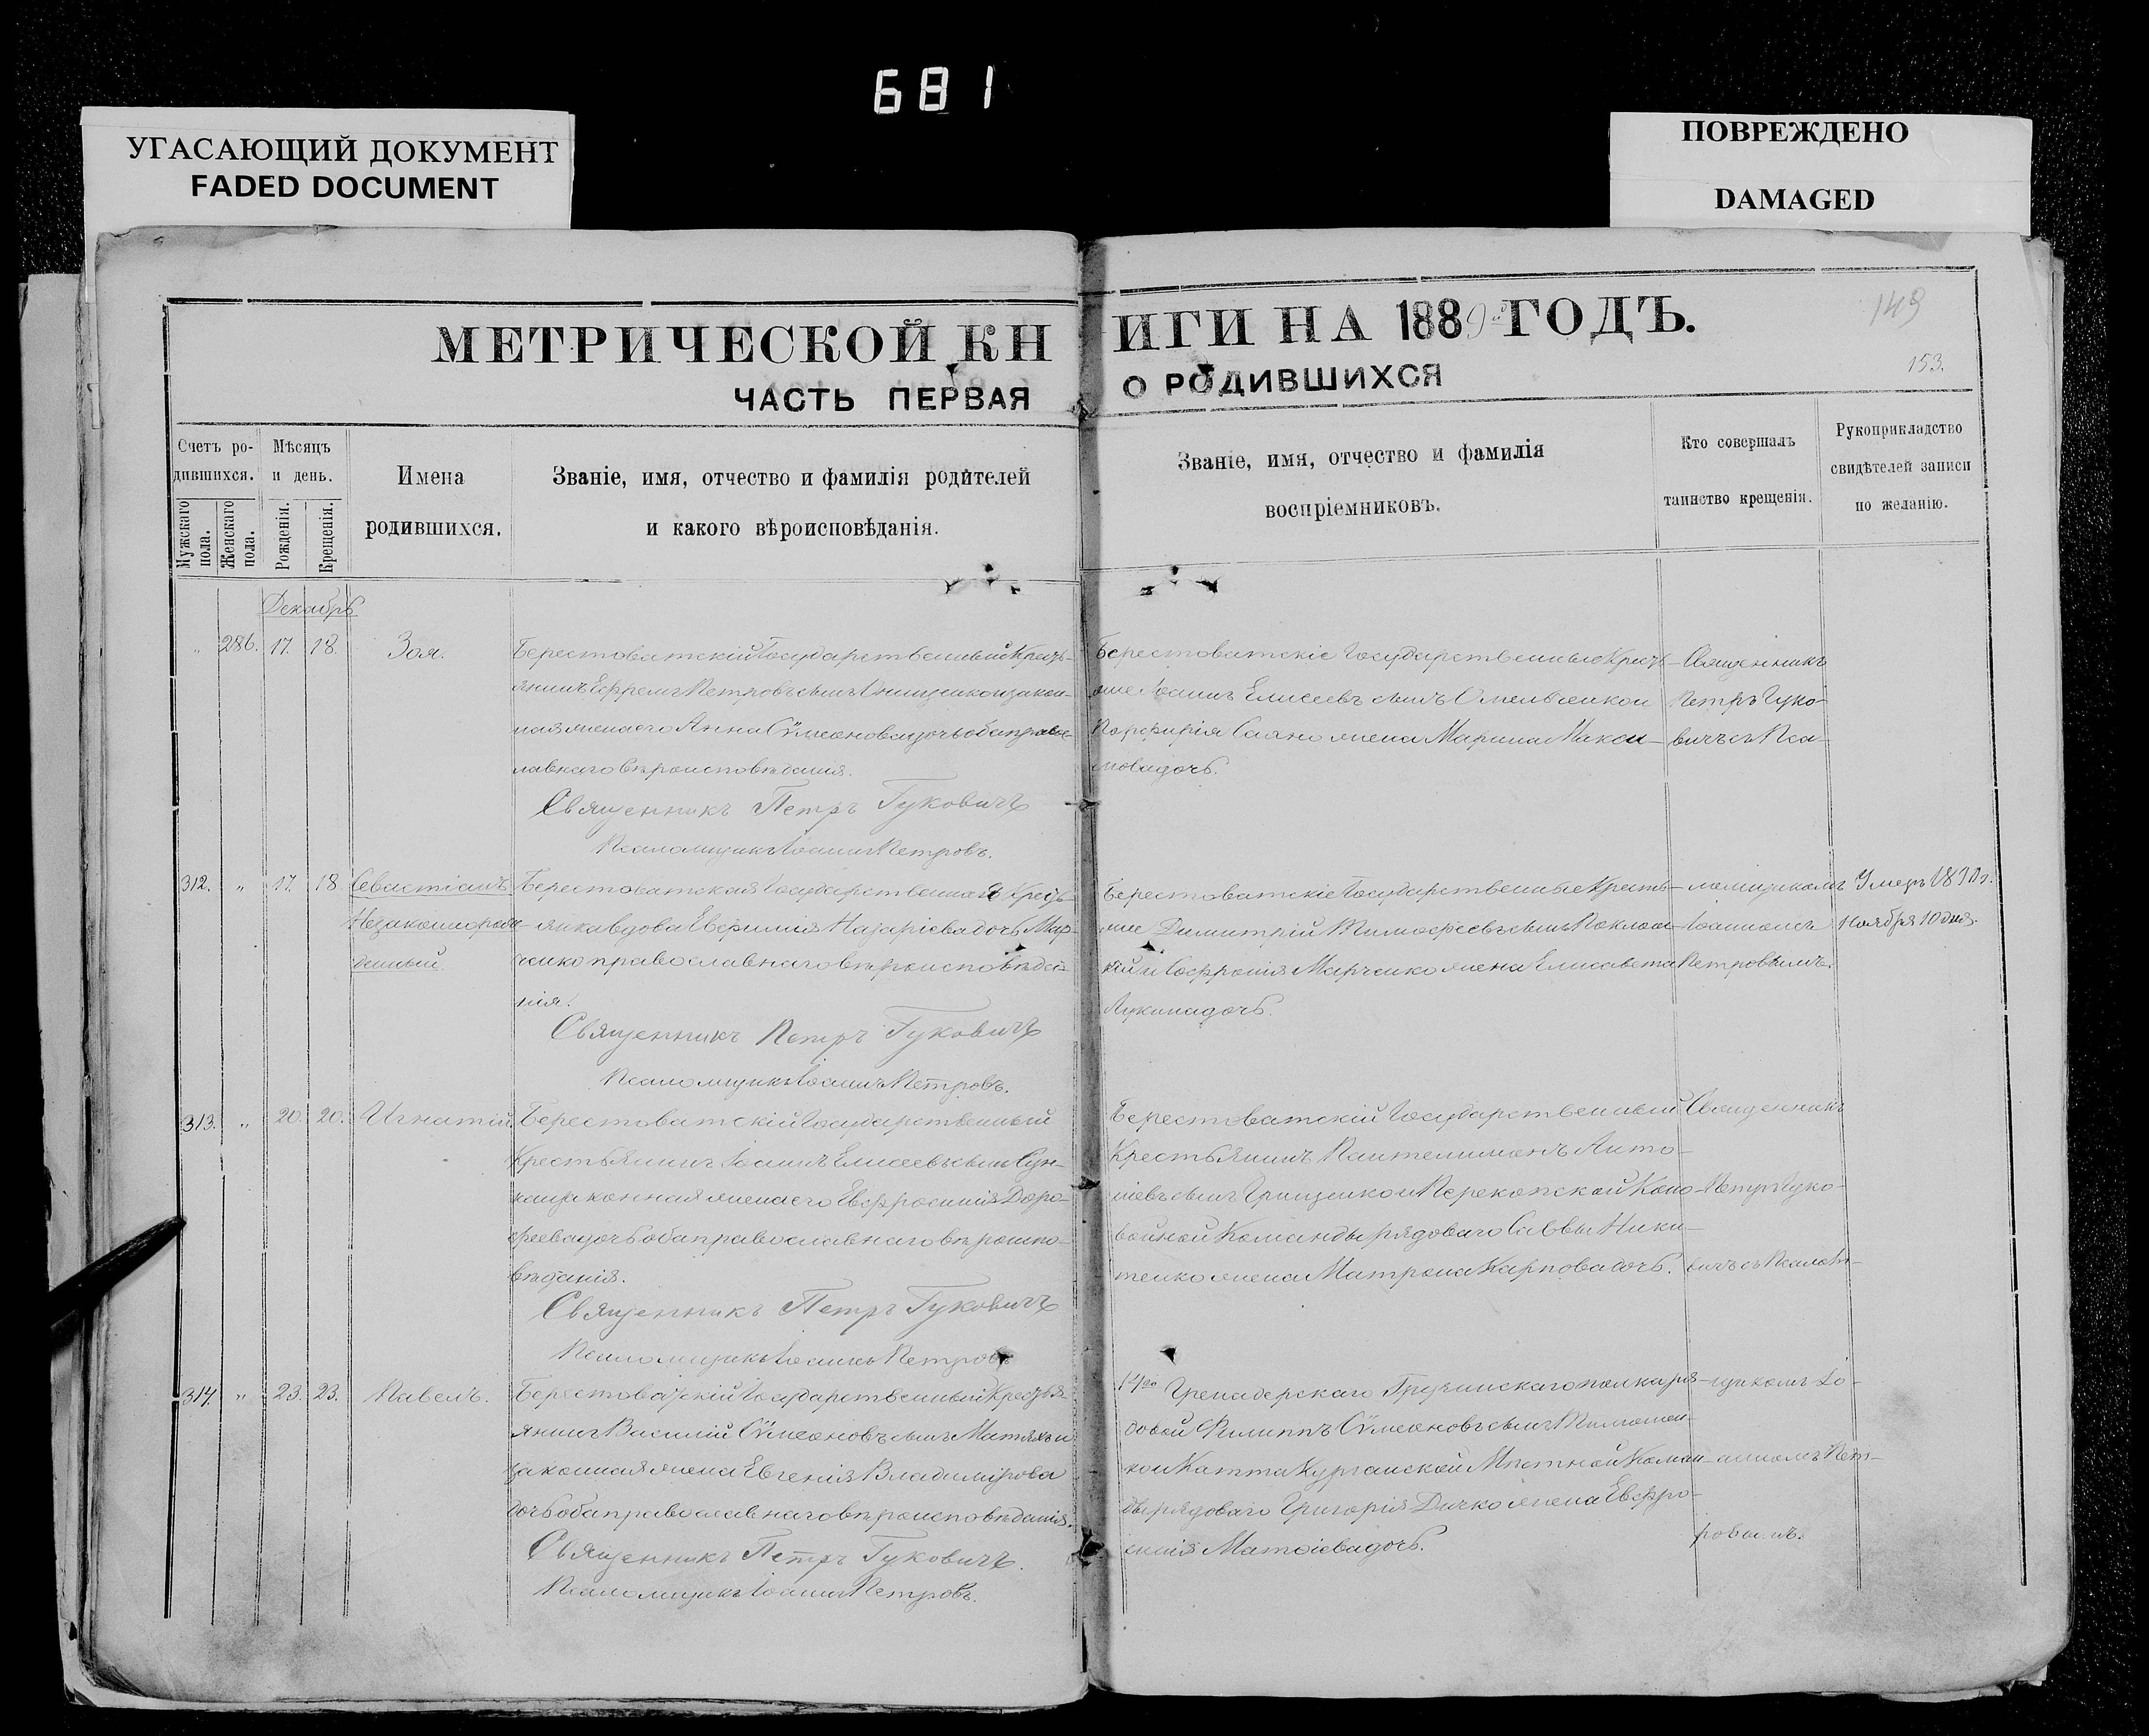 681
УГАСАЮЩИЙ ДОКУМЕНТ
FADED DOCUMENT
ПОВРЕЖДЕНО
DAMAGED
МЕТРИЧЕСКОЙ КНИГИ НА 1889й ГОДЪ.
149
153.
ЧАСТЬ ПЕРВАЯ О РОДИВШИХСЯ
Счетъ ро-
дившихся.
Мужскаго пола.
Женскаго пола.
Мѣсяцъ
и день.
Рожденія.
Крещенія.
Имена
родившихся.
Званіе, имя, отчество и фамилія родителей
и какого вѣроисповѣданія.
Званіе, имя, отчество и фамилія
воспріемниковъ.
Кто совершалъ
таинство крещенія.
Рукоприкладство
свидѣтелей записи
по желанію.
Декабрь
" 286. 17. 18. Зоя.
Берестоватскій Государственный Кресть-
янинъ Ефремъ Петровъ сынъ Онищенко и закон-
ная жена его Анна Сѵмеонова дочь оба право-
славнаго вѣроисповѣданія.
Священникъ Петръ Гуковичъ
Псаломщикъ Іоаннъ Петровъ.
Берестоватскіе Государственные Кресть-
яне Іоаннъ Елисеевъ сынъ Омельченко и
Порфирія Саяно жена Марина Макси-
мова дочь.
Священникъ
Петръ Гуко-
вичъ съ Пса-
312. " 17. 18. Севастіанъ
Незаконнорож-
денный.
Берестоватская Государственная Кресть-
янка вдова Евфимия Назаріева дочь Мар-
ченко православнаго вѣроисповѣда-
нія.
Священникъ Петръ Гуковичъ
Псаломщикъ Іоаннъ Петровъ.
Берестоватскіе Государственные Кресть-
яне Димитрій Тимофеевъ сынъ
и Софронія Марченко жена Елисавета
Лукина дочь.
ломщикомъ
Іоанномъ
Петровымъ.
Умеръ 1890 г.
Ноября 10 дня.
313. " 20. 20. Игнатій
Берестоватскій Государственный
Крестьянинъ Іоаннъ Елисеевъ сынъ
законная жена его Евфросинія Доро-
феева дочь оба православнаго вѣроиспо-
вѣданія.
Священникъ Петръ Гуковичъ
Псаломщикъ Іоаннъ Петровъ
Берестоватскій Государственный
Крестьянинъ Пантелимонъ Анто-
ніевъ сынъ Грищенко и Перекопской Коно-
войной Команды рядоваго Саввы Ники-
тенко жена Матрона Карпова дочь.
Священникъ
Петръ Гуко-
вичъ съ Псалом-
314. " 23. 23. Павелъ.
Берестоватскій Государственный Крестья-
янинъ Василий Сѵмеоновъ сынъ Матяхъ и
законная жена Евгенія Владимірова
дочь оба православнаго вѣроисповѣданія.
Священникъ Петръ Гуковичъ.
Псаломщикъ Іоаннъ Петровъ.
14го Гренадерскаго Грузинскаго полка ря-
довой Филиппъ Сѵмеоновъ сынъ
Катта Курганской Мѣстной Коман-
ды рядоваго Григорія Дичко жена Евфро-
синія Матѳіева дочь.
щикомъ Іо-
анномъ Пет-
ровымъ.